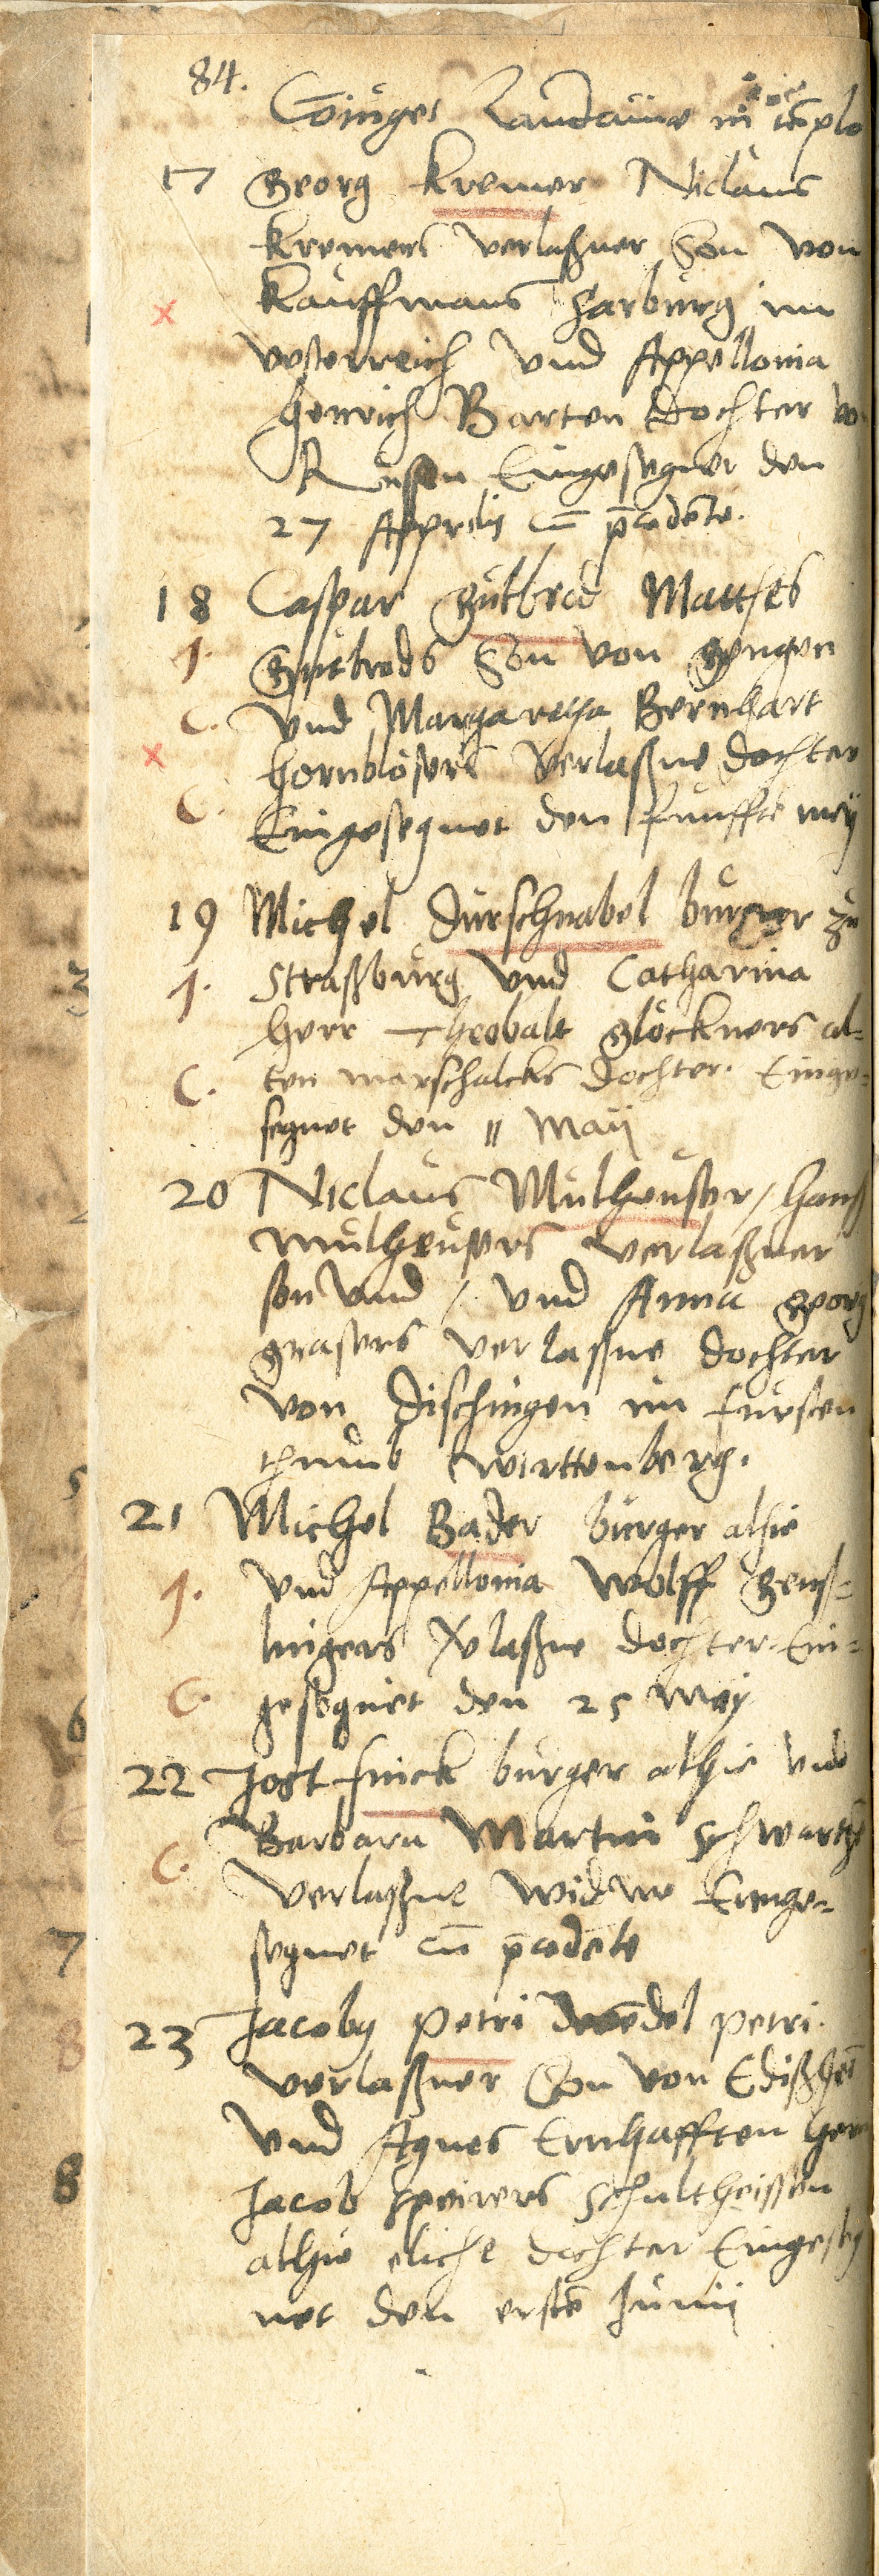 84.
Coniuges Landauiae in templo
17 Georg Kremer Niclaus
Kremers verlaßner Son von
Kauffmans Sarburg im
vesterreich vnd Appellonia
Henrich Barten dochter
Eingesegnet den
27 Apprilis cū p̄cedēte.
18 Caspar Gutbrod Matthes
1. Gutbrods Son von Gengen
C. Vnd Margaretha Bernhart
hornblösers Verlaßne dochter
C. Eingesegnet den funfftē mey
19 Michel Durschnabel burger zu
1. Straßburg Vnd Catharina
Herr Theobalt Glöckners al-
C. ten marschalcks dochter. Einge-
segnet den 11 Maij
20 Niclaus Mulheuser / Hanß
Mulheusers verlaßner
son vnd / vnd Anna Georg
Grasers verlaßne dochter
von Dischingen im fursten
thumb Wirttenberg.
21 Michel Bader burger alhie
1. vnd Appellonia Wolff Genß-
lingers Vlaßne dochter. Ein-
C. gesegnet den 25 Mey
22 Jost Finck burger alhie vnd
Barbara Martin Schwartzē
C. Verlaßne widwe Einge-
segnet cū p̄cedēte
23 Jacoby Petri Wendel Petri
verlaßner Son von Edißheī
Vnd Agnes Ernhafften Herr
Jacob Speirers Schultheißen
alhie eliche dochter Eingeseg
net den erstē Junij
3
5
6
7
8
8